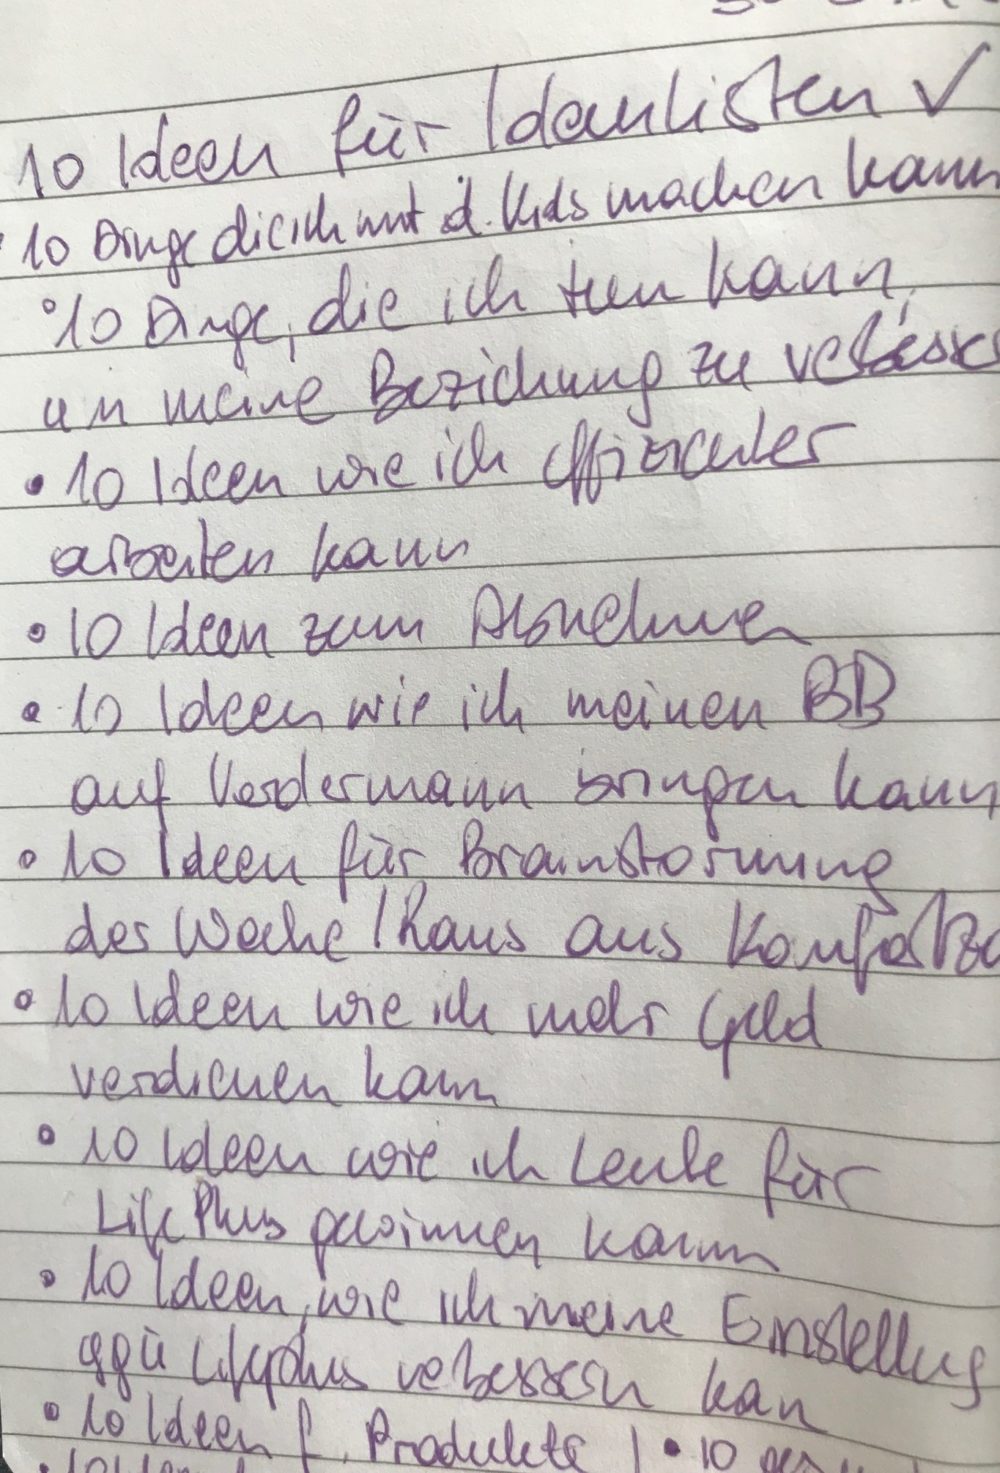 10 Ideen für Ideenlisten ✓
10 Dinge die ich mit d. Kids machen kann
10 Dinge, die ich tun kann,
um meine Beziehung zu verbesse
• 10 Ideen wie ich effizienter
arbeiten kann
• 10 Ideen zum Abnehmen
• 10 Ideen wie ich meinen BB
auf Vordermann bringen kann
• 10 Ideen für Brainstorming
der Woche / Raus aus Komfortzo
• 10 Ideen wie ich mehr Geld
verdienen kann
• 10 Ideen wie ich Leute für
LifePlus gewinnen kann
• 10 Ideen, wie ich meine Einstellung
ggü Lifeplus verbessern kan
• 10 Ideen f. Produkte | • 10